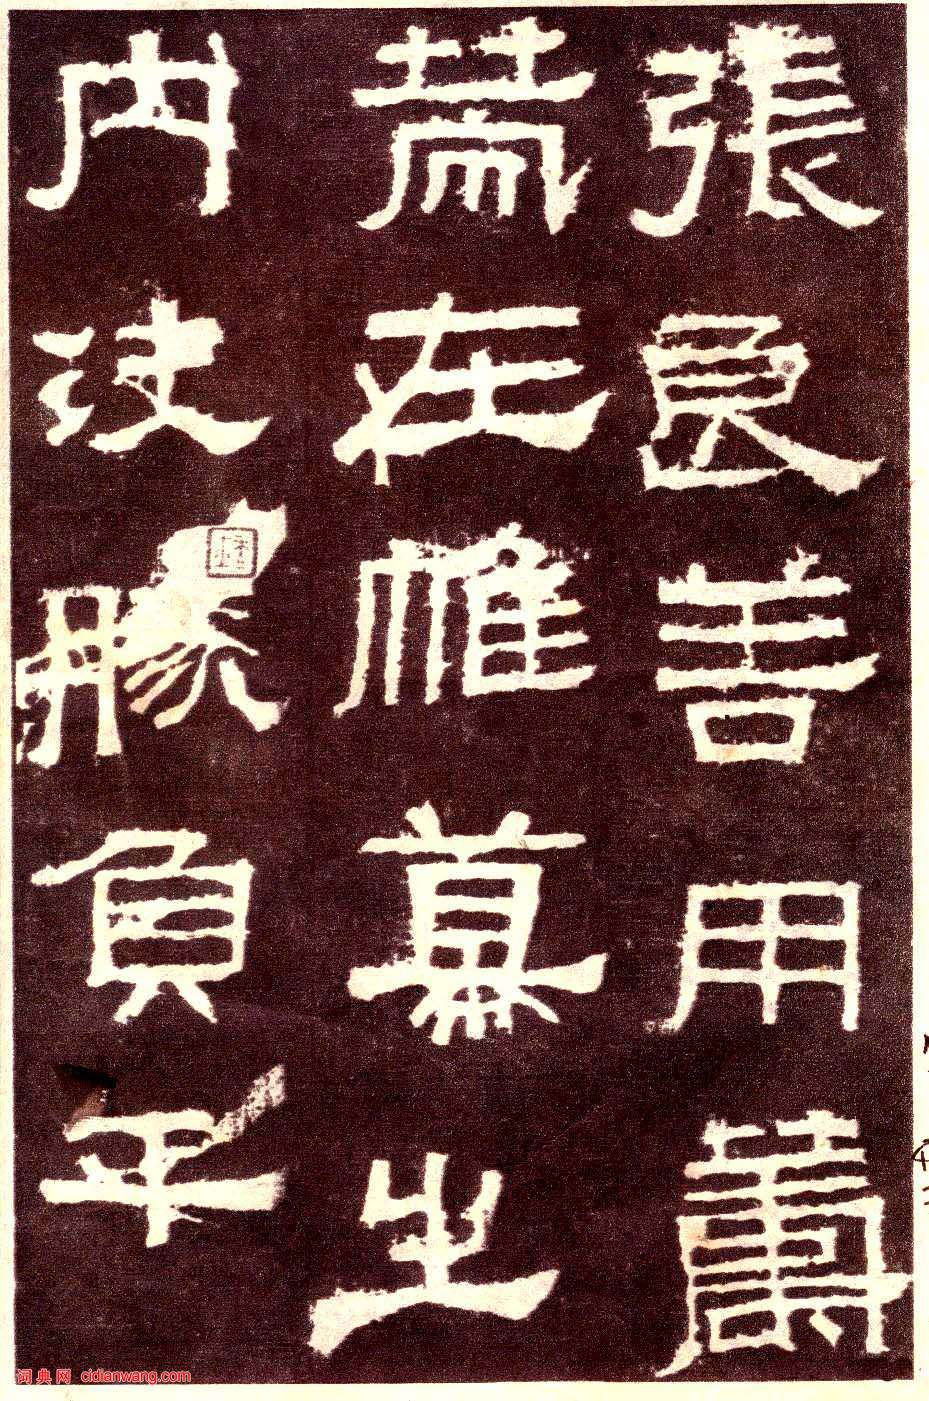 張良善用籌
策在帷幕之
内決勝負千
词典网 cidianwang.com